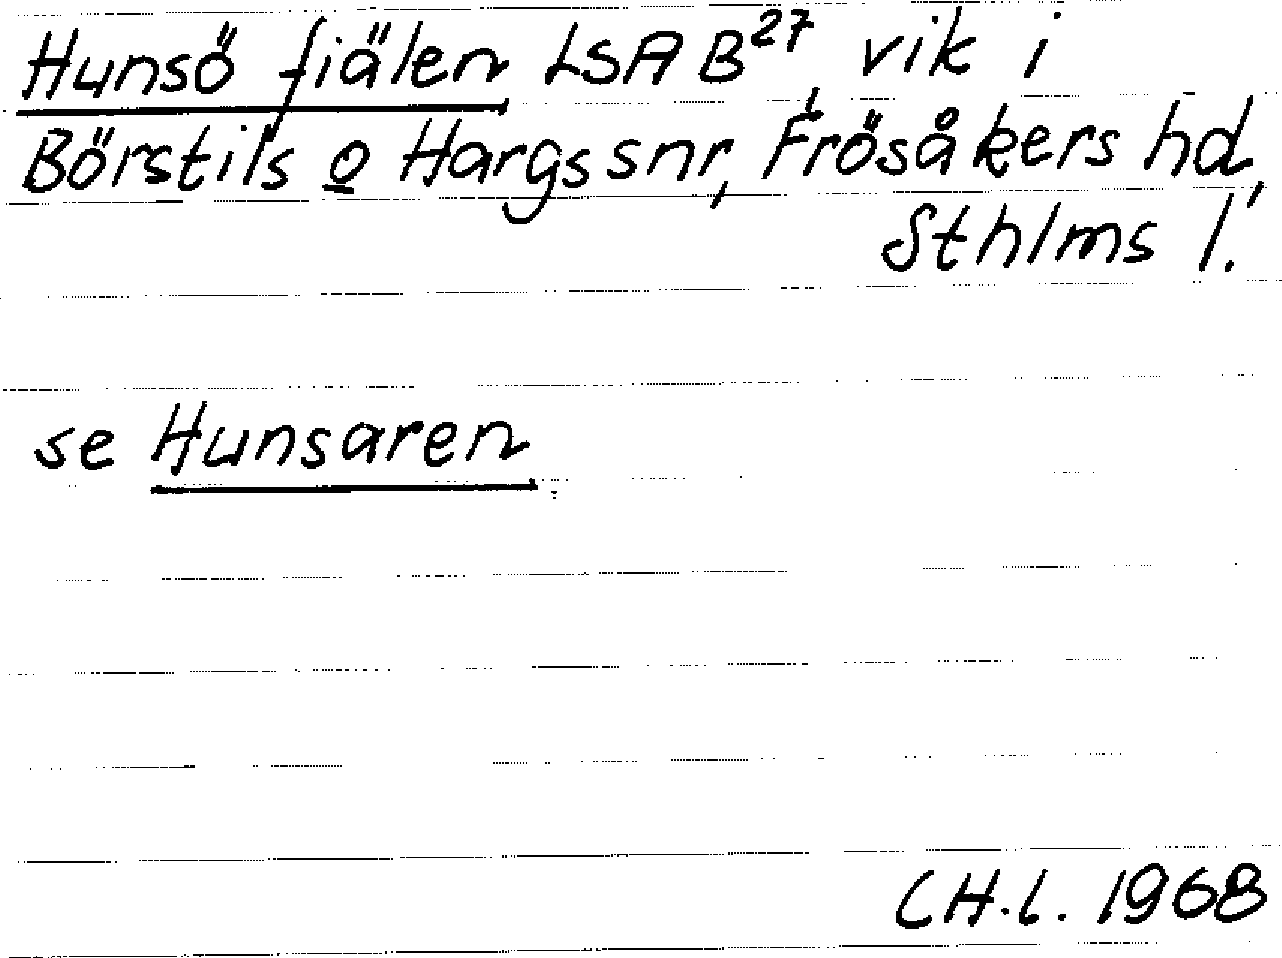 Hunsö fiälen LSA B²⁷, vik i
Börstils o Hargs snr, Frösåkers hd,
Sthlms l.
se Hunsaren
CH.L. 1968